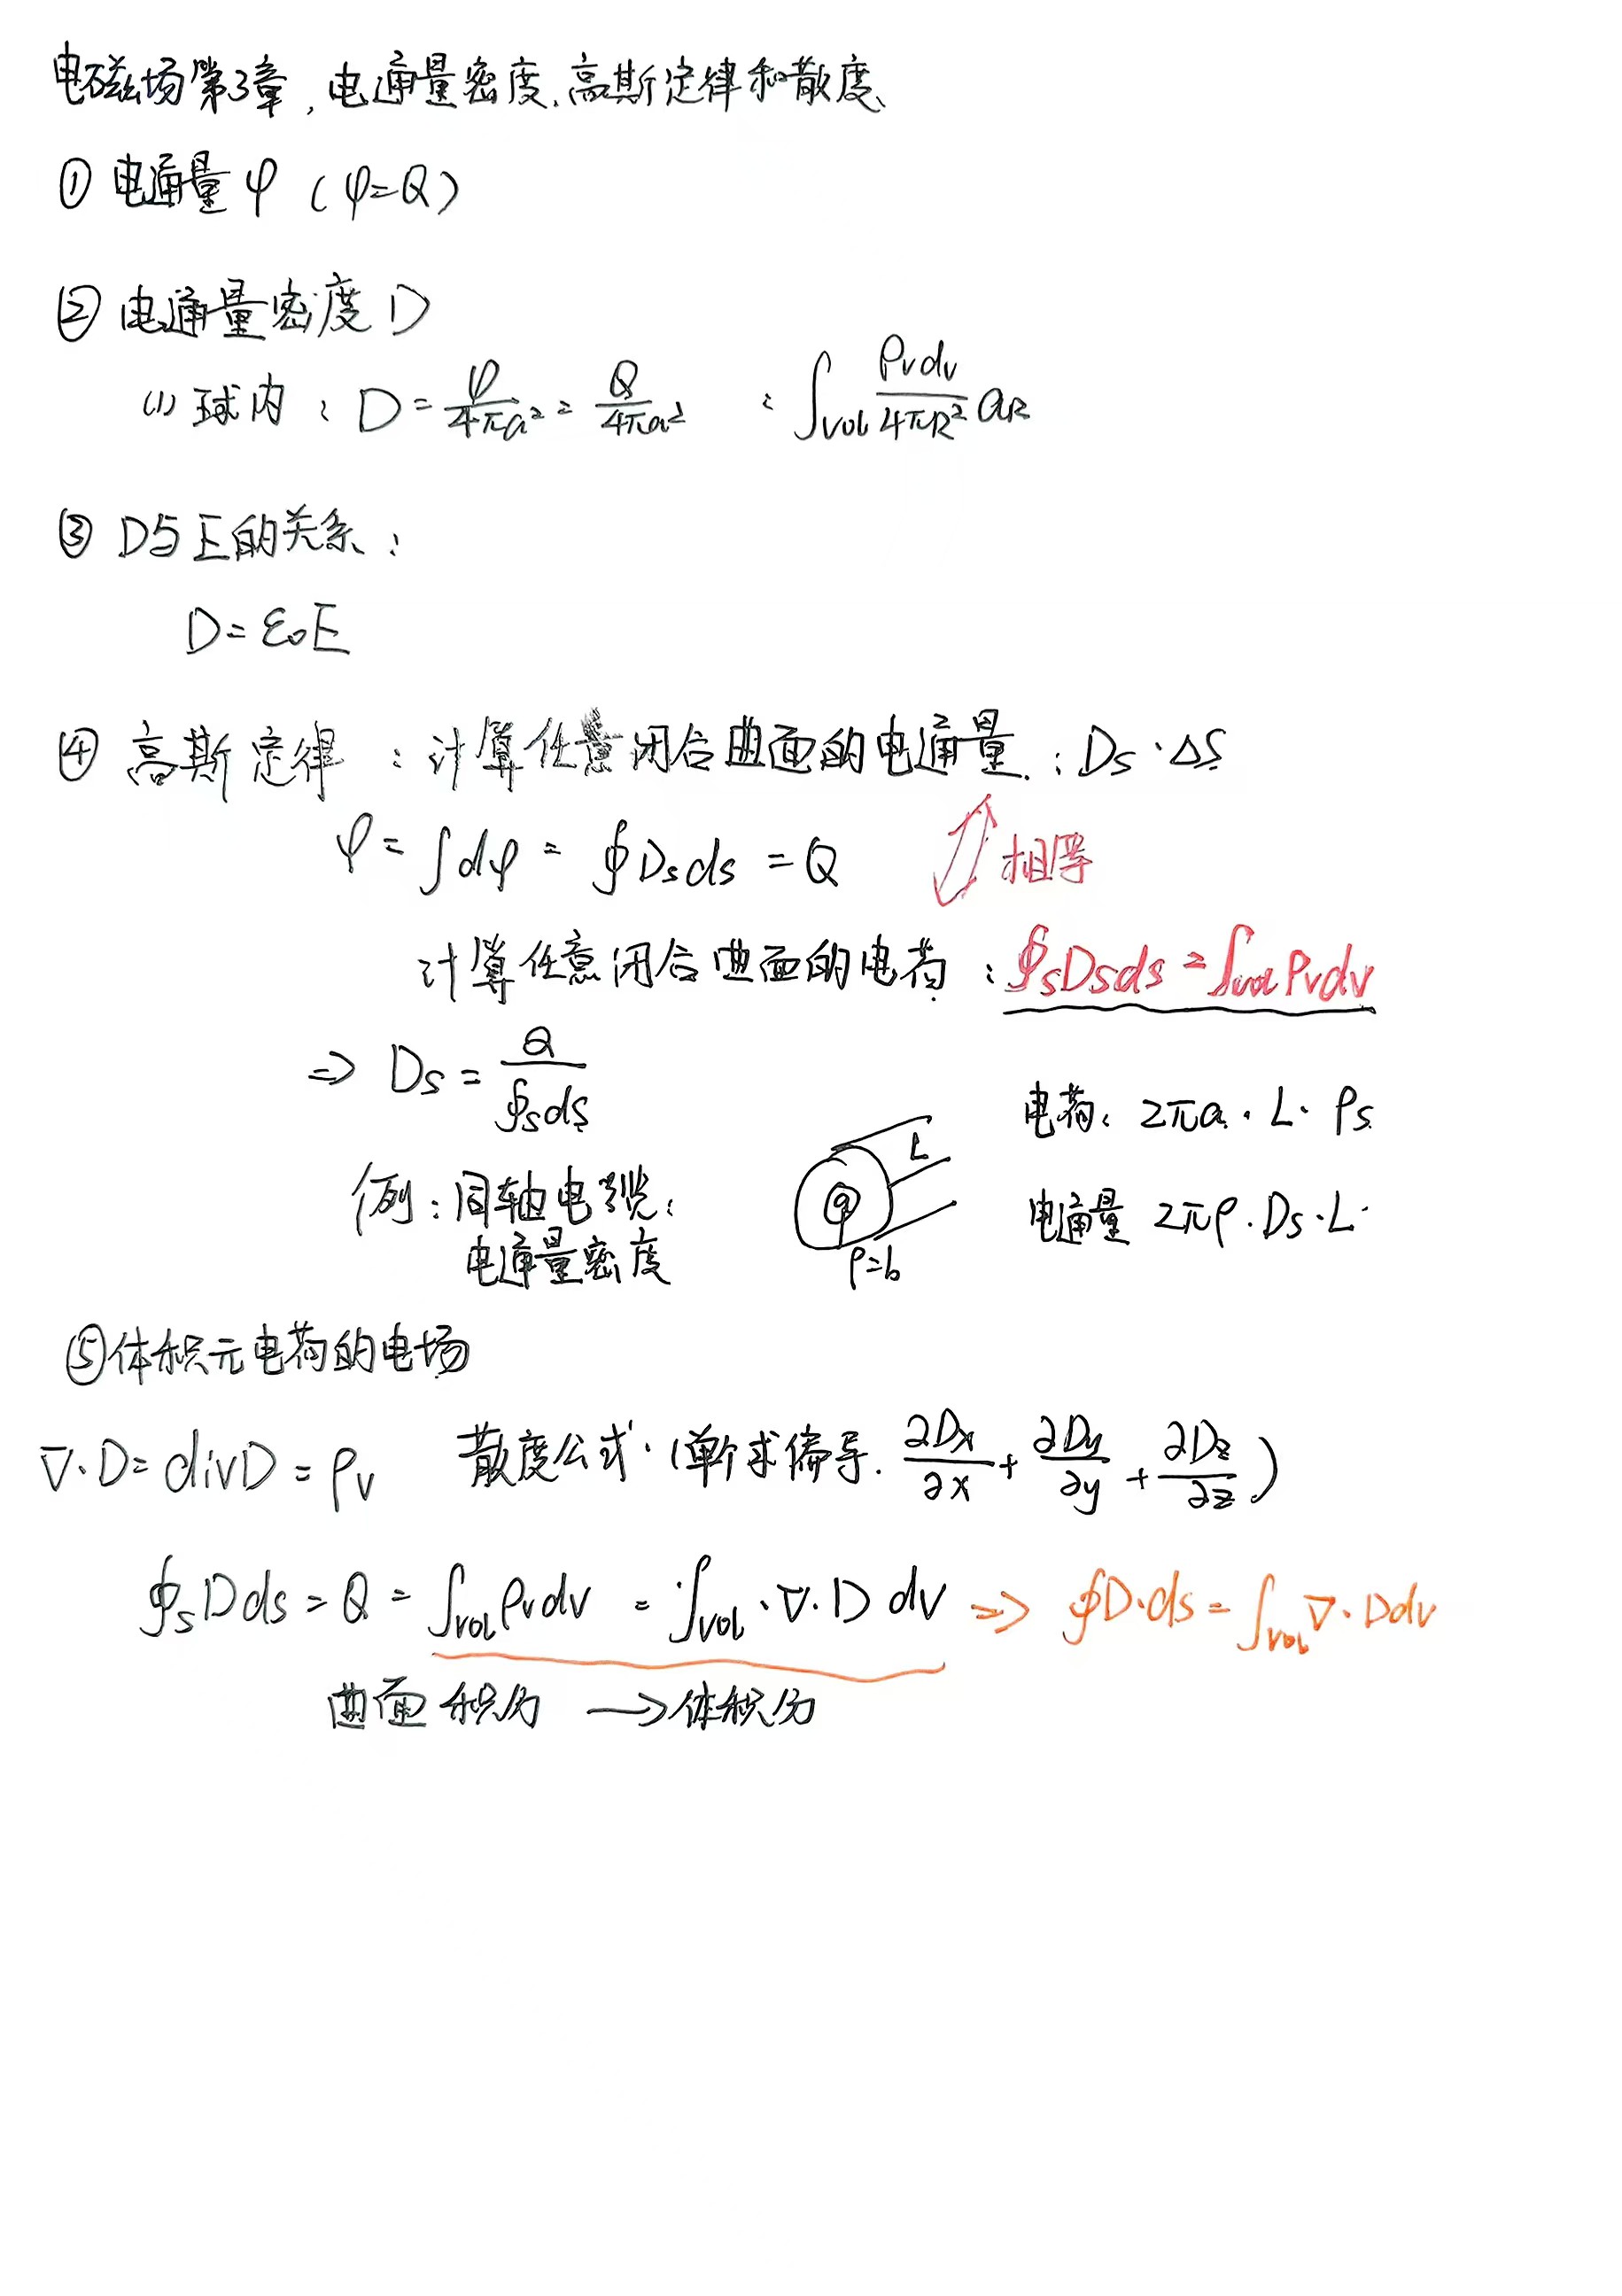 电磁场第3章，电通量密度、高斯定律和散度
① 电通量 φ (φ=Q)
② 电通量密度 D
(1) 球内：D = φ/4πa² = Q/4πa² : ∫vol ρvdv/4πR² aR
③ D与E的关系：
D = ε₀E
④ 高斯定律：计算任意闭合曲面的电通量.：Ds·ΔS
φ = ∫dφ = ∮Dsds = Q 相等
计算任意闭合曲面的电荷：∮sDsds = ∫vol ρvdv
=> Ds = Q/∮sds
电荷：2πa · L · ρs
L
例：同轴电缆：
电通量 2πρ · Ds · L
电通量密度
ρ=b
⑤体积元电荷的电场
∇·D = divD = ρv 散度公式·(单个求偏导. ∂Dx/∂x + ∂Dy/∂y + ∂Dz/∂z)
∮sDds = Q = ∫vol ρvdv = ∫vol·∇·D dv => ∮D·ds = ∫vol ∇·Ddv
曲面积分 → 体积分